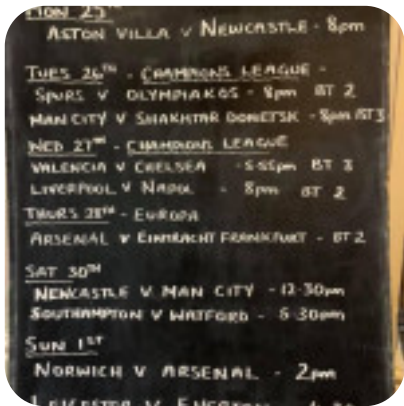 MON 25TH
ASTON VILLA V NEWCASTLE - 8pm
TUES 26TH - CHAMPIONS LEAGUE -
SPURS V OLYMPIAKOS - 8pm BT 2
MAN CITY V SHAKHTAR DONETSK - 8pm BT3
WED 27TH - CHAMPIONS LEAGUE
VALENCIA V CHELSEA - 5-55pm BT 3
LIVERPOOL V NAPOLI - 8pm BT 2
THURS 28TH - EUROPA
ARSENAL V EINTRACHT FRANKFURT - BT 2
SAT 30TH
NEWCASTLE V MAN CITY - 12-30pm
SOUTHAMPTON V WATFORD - 5-30pm
SUN 1ST
NORWICH V ARSENAL - 2pm
LEICESTER V EVERTON